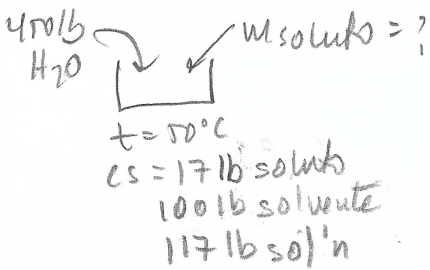 450lb
H2O
msoluto = ?
t = 50°C
cs = 17 lb soluto
100 lb solvente
117 lb sol'n